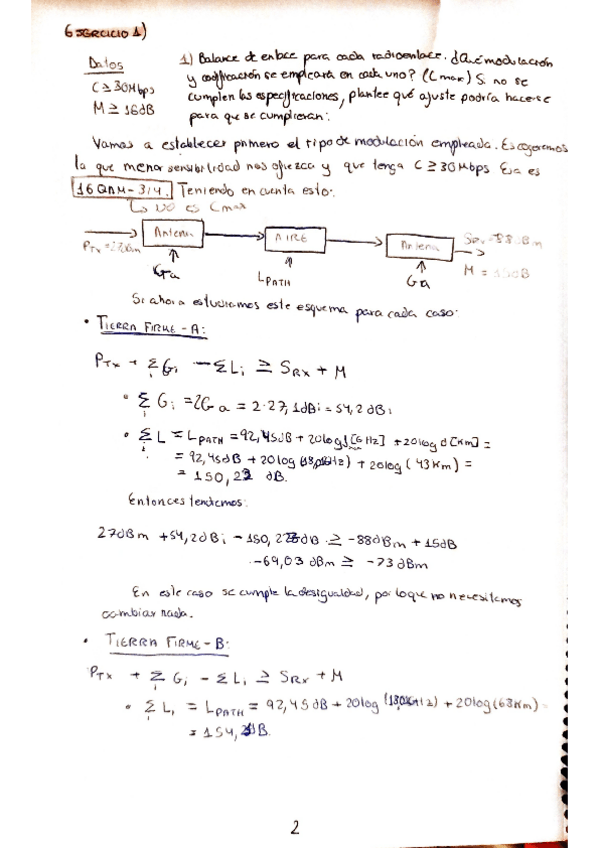 EJERCICIO 1)
Datos
C ≥ 30Mbps
M ≥ 16dB
1) Balance de enlace para cada radioenlace. ¿Qué modulación
y codificación se empleará en cada uno? (Cmax) Si no se
cumplen las especificaciones, plantee qué ajuste podría hacerse
para que se cumplieran:
Vamos a establecer primero el tipo de modulación empleada. Escogeremos
la que menor sensibilidad nos ofrezca y que tenga C ≥ 30Mbps Esa es
16QAM-3/4. Teniendo en cuenta esto:
↳ NO es Cmax
Antena
AIRE
Antena
Ga
LPATH
Ga
Si ahora estudiamos este esquema para cada caso:
• TIERRA FIRME - A:
PTx + Σi Gi - Σ Li ≥ SRx + M
• Σi Gi = 2Ga = 2·27,1dBi = 54,2dBi
• Σi L = LPATH = 92,45dB + 20logf[GHz] + 20logd[Km] =
= 92,45dB + 20log( ) + 20log(43Km) =
= dB.
Entonces tendemos:
27dBm + 54,2dBi - dB ≥ -88dBm + 15dB
-69,03 dBm ≥ -73dBm
En este caso se cumple la desigualdad, por lo que no necesitamos
cambiar nada.
• TIERRA FIRME - B:
PTx + Σi Gi - Σi Li ≥ SRx + M
• Σi Li = LPATH = 92,45dB + 20log( ) + 20log(63Km) =
= dB.
2